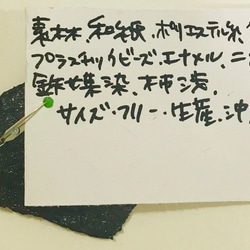 裏材.和紙.ポリエステル糸.
プラスチックビーズ.エナメル.ニ
鉄媒染.柿渋.
サイズ・フリー・生産.沖